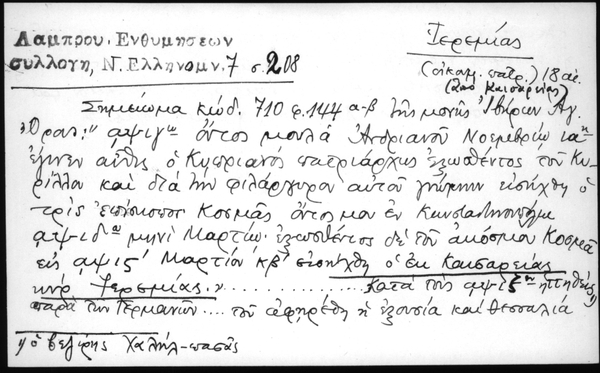 Λαμπρου. Ενθυμησεων
συλλογη, Ν. Ελληνομν. 7 σ. 208
Ἱερεμίας
(οἰκουμ. πατρ.) 18 αἰ.
(ἀπὸ Καισαρείας)
Σημείωμα κώδ. 710 φ. 144 α-β τῆς μονῆς Ἰβήρων Ἁγ.
Ὄρους: "αψιγῳ ὄντος μουλᾶ Ἀνδριανοῦ Νοεμβρίῳ ιαῃ
ἔγινεν αὖθις ὁ Κυπριανὸς πατριάρχης ἐξωθέντος τοῦ Κυ-
ρίλλου καὶ διὰ τὴν φιλάργυρον αὐτοῦ γνώμην εἰσήχθη ὁ
τρὶς ἐπίσκοπος Κοσμᾶς ὄντος μου ἐν Κωνσταντινουπόλει
αψιδῳ μηνὶ Μαρτίῳ· ἐξωσθέντος δὲ τοῦ ἀκόσμου Κοσμᾶ
εἰς αψιϛ' Μαρτίου κβ' εἰσήχθη ὁ ἐκ Καισαρείας
κὺρ Ἱερεμίας." ........ κατὰ τῆς αψιζῃ ἡττηθεὶς 1)
παρὰ τῶν Γερμανῶν .... τοῦ ἀφῃρέθη ἡ ἐξουσία καὶ Θεσσαλία
1) ὁ βεζίρης Χαλὴλ-πασᾶς